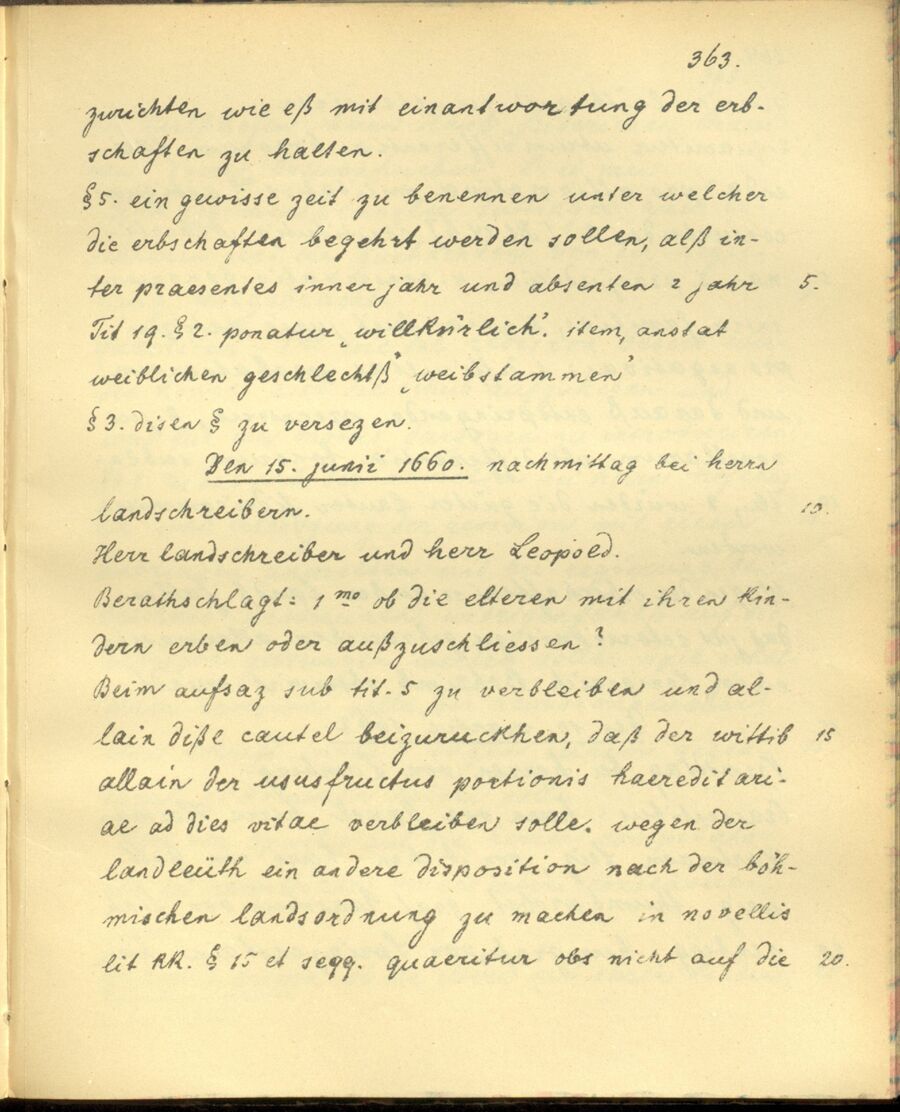 363.
zurichten wie eß mit einantwortung der erb-
schaften zu halten.
§ 5. ein gewisse zeit zu benennen unter welcher
die erbschaften begehrt werden sollen, alß in-
ter praesentes inner jahr und absenten 2 jahr 5.
Tit 19. § 2. ponatur „willkürlich“. item, anstat
weiblichen geschlechtß „weibstammen“
§ 3. disen § zu versezen.
Den 15. junii 1660. nachmittag bei herrn
landschreibern. 10.
Herr landschreiber und herr Leopold.
Berathschlagt: 1mo ob die elteren mit ihren kin-
dern erben oder außzuschliessen?
Beim aufsaz sub tit. 5 zu verbleiben und al-
lain diße cautel beizuruckhen, daß der wittib 15
allain der ususfructus portionis haereditari-
ae ad dies vitae verbleiben solle. wegen der
landleüth ein andere disposition nach der böh-
mischen landsordnung zu machen in novellis
lit RR. § 15 et seqq. quaeritur obs nicht auf die 20.